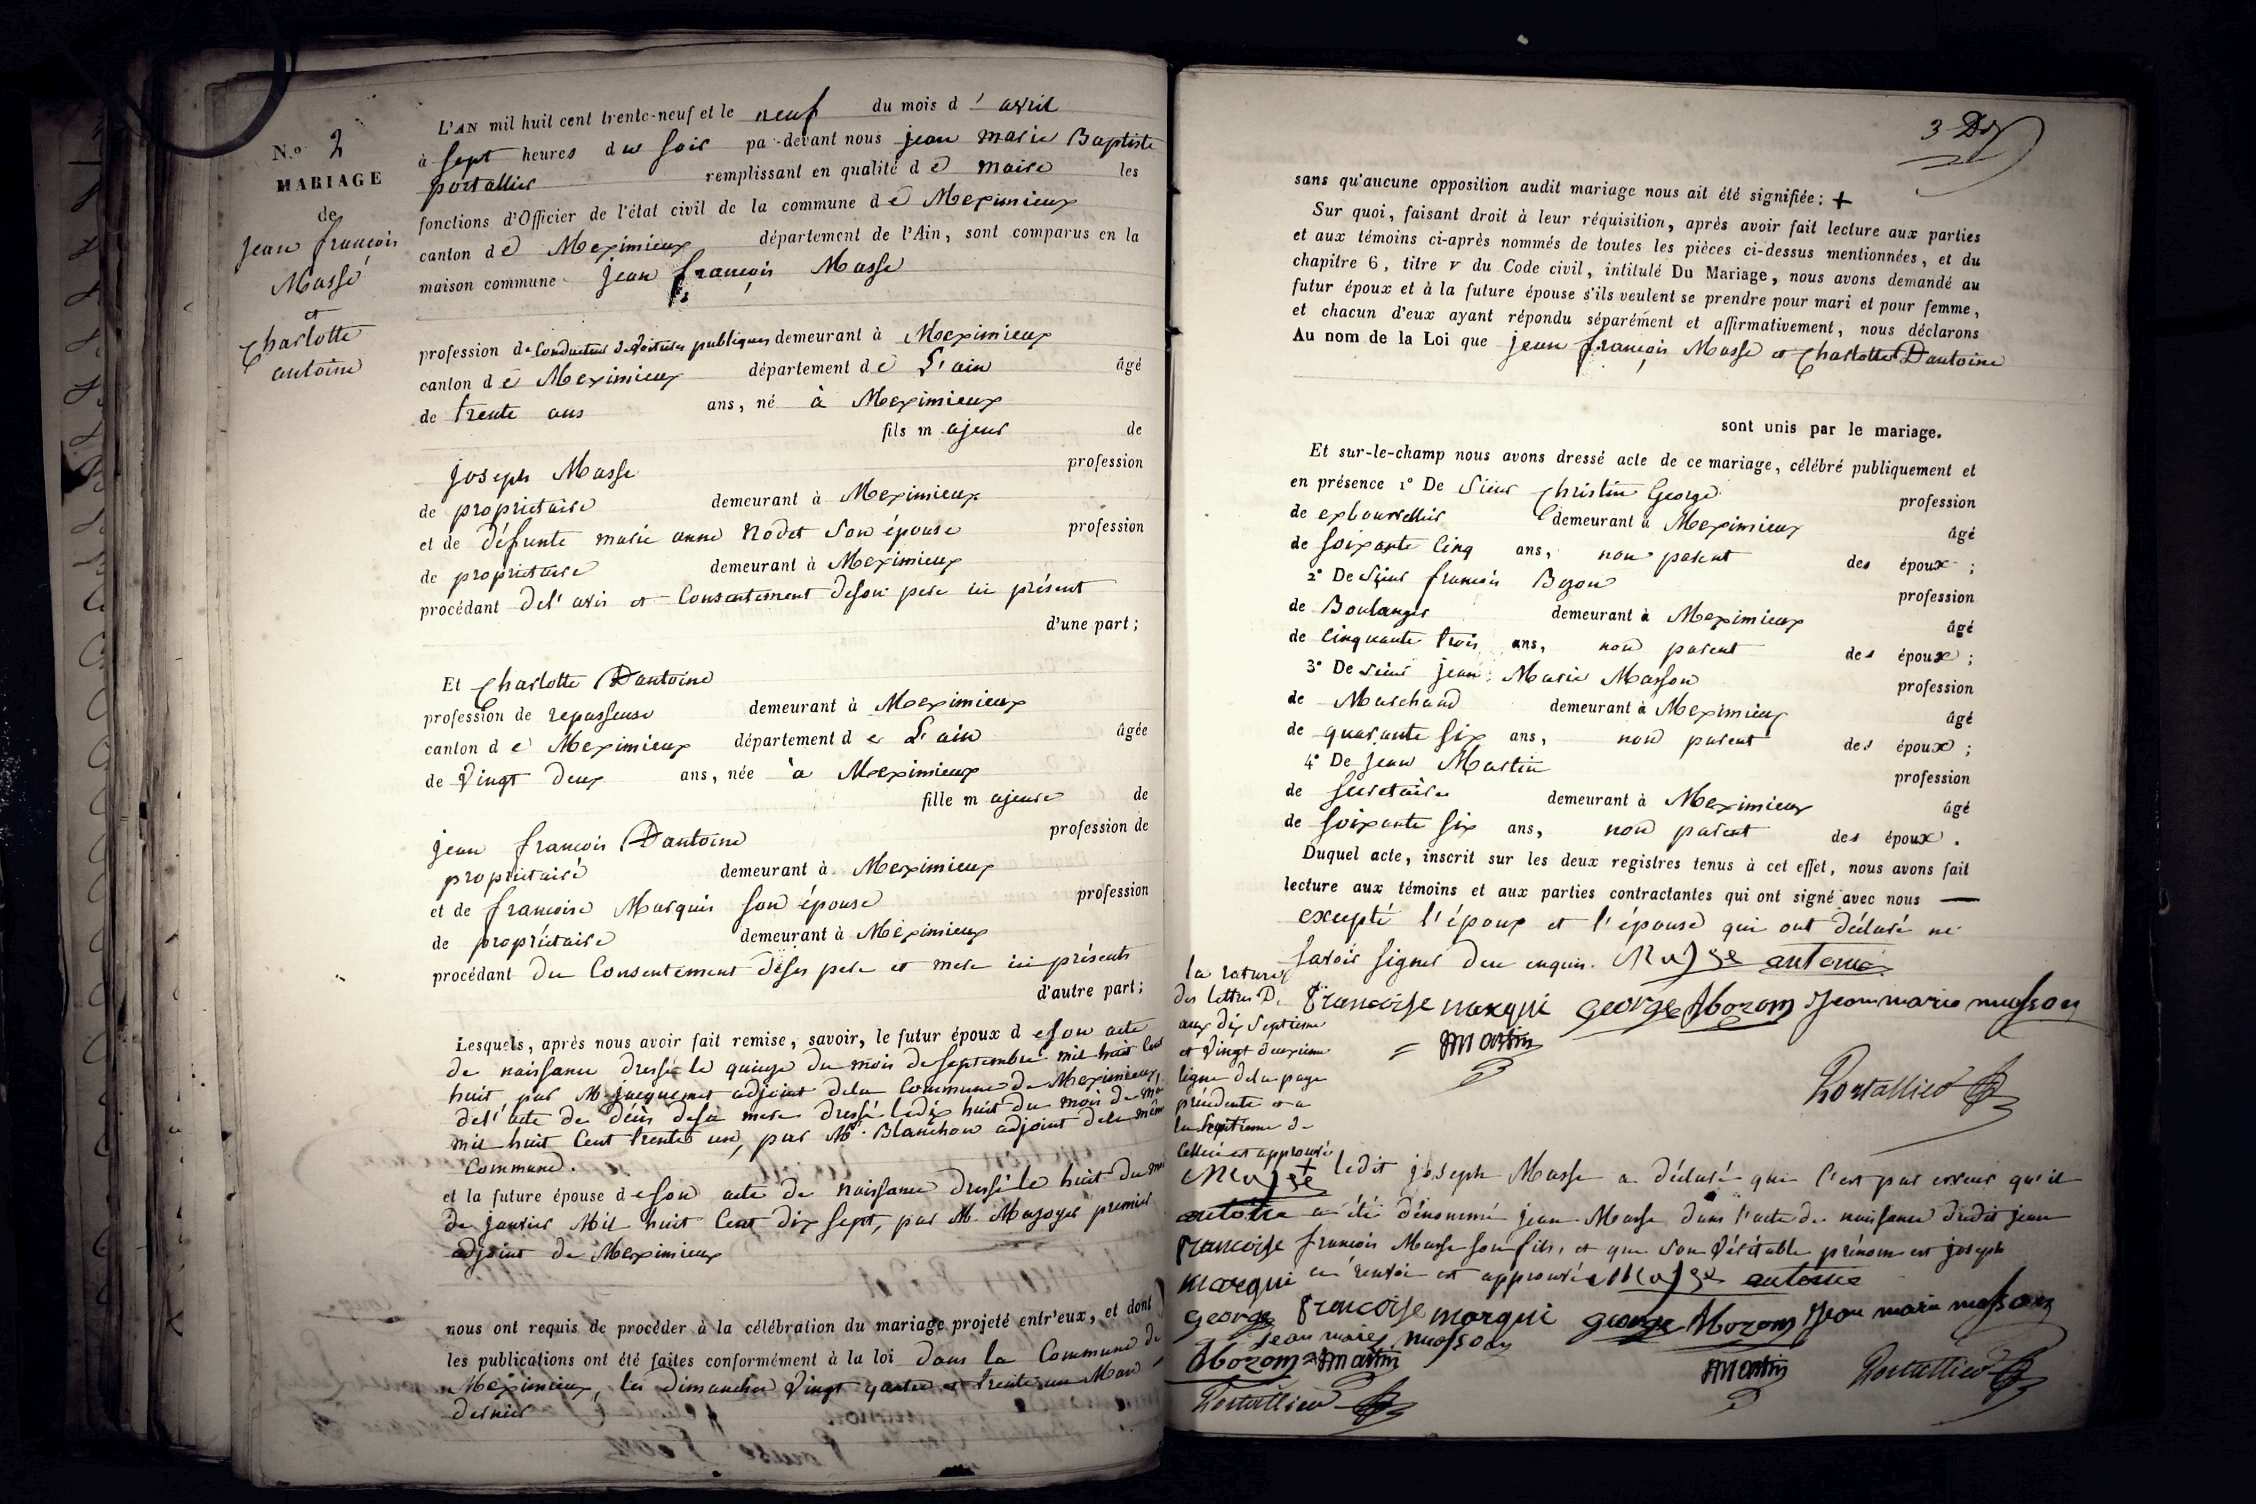 N.° 2
MARIAGE
de
jean françois
Massé
et
Charlotte
antoine
L'AN mil huit cent trente-neuf et le neuf du mois d'avril
à sept heures du soir par-devant nous jean marie Baptiste
portallier remplissant en qualité de maire les
fonctions d'Officier de l'état civil de la commune de Meximieux
canton de Meximieux département de l'Ain, sont comparus en la
maison commune jean françois Masse
profession de Conducteur de Voitures publiques demeurant à Meximieux
canton de Meximieux département de L'ain âgé
de trente ans ans, né à Meximieux
fils majeur de
joseph Masse profession
de proprietaire demeurant à Meximieux
et de défunte marie anne Rodet son épouse profession
de proprietaire demeurant à Meximieux
procédant de l'avis et Consentement de son pere ici présent
d'une part;
Et Charlotte Dantoine
profession de repasseuse demeurant à Meximieux
canton de Meximieux département de L'ain âgée
de Vingt deux ans, née à Meximieux
fille majeure de
jean françois Dantoine profession de
propriétaire demeurant à Meximieux
et de françoise Marquis son épouse profession
de propriétaire demeurant à Meximieux
procédant du Consentement de ses pere et mere ici présents
d'autre part;
Lesquels, après nous avoir fait remise, savoir, le futur époux de son acte
de naissance dressé le quinze du mois de septembre mil huit Cent
huit, par M. jacquemet adjoint de la Commune de Meximieux,
de l'acte de décès de sa mere dressé le dix huit du mois de mai
mil huit Cent trente un, par Mr. Blanchon adjoint de la même
Commune.
et la future épouse de son acte de naissance dressé le huit du mois
de janvier Mil huit Cent dix sept, par M. Mazoyer premier
adjoint de Meximieux
nous ont requis de procéder à la célébration du mariage projeté entr'eux, et dont
les publications ont été faites conformément à la loi dans la Commune de
Meximieux, les dimanches Vingt quatre et trente un Mars
dernier
3 D
sans qu'aucune opposition audit mariage nous ait été signifiée; +
Sur quoi, faisant droit à leur réquisition, après avoir fait lecture aux parties
et aux témoins ci-après nommés de toutes les pièces ci-dessus mentionnées, et du
chapitre 6, titre v du Code civil, intitulé Du Mariage, nous avons demandé au
futur époux et à la future épouse s'ils veulent se prendre pour mari et pour femme,
et chacun d'eux ayant répondu séparément et affirmativement, nous déclarons
Au nom de la Loi que jean françois Masse et Charlotte Dantoine
sont unis par le mariage.
Et sur-le-champ nous avons dressé acte de ce mariage, célébré publiquement et
en présence 1° De Sieur Christin George profession
de exbourrellier demeurant à Meximieux âgé
de soixante Cinq ans, non parent des époux;
2° De Sieur françois Bozon profession
de Boulanger demeurant à Meximieux âgé
de Cinquante trois ans, non parent des époux;
3° De Sieur jean Marie Masson profession
de Marchand demeurant à Meximieux âgé
de quarante six ans, non parent des époux;
4° De jean Martin profession
de secretaire demeurant à Meximieux âgé
de soixante six ans, non parent des époux.
Duquel acte, inscrit sur les deux registres tenus à cet effet, nous avons fait
lecture aux témoins et aux parties contractantes qui ont signé avec nous —
excepté l'époux et l'épouse qui ont déclaré ne
savoir signer de ce enquis. Masse antoine
françoise marqui george Abozom Jean marie masson
= Martin
Portallier
la rature
des lettres D.
aux dix septieme
et Vingt deuxieme
ligne de la page
précédente et a
la septieme de
Celle ci est approuvé
Masse
antoine
françoise
marqui
george
jean marie masson
Abozom = Martin
Portallier
+ ledit joseph Masse a déclaré que C'est par erreur qu'il
a été dénommé jean Masse dans l'acte de naissance dudit jean
françois Masse son fils, et que son Véritable prénom est joseph
ce renvoi est approuvé Masse antoine
françoise marqui george Abozom Jean marie masson
Martin Portallier